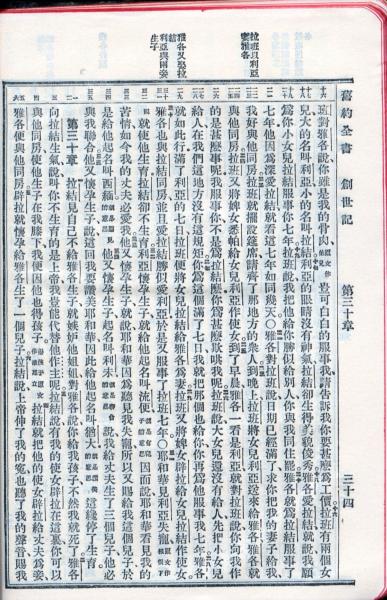 舊約全書 創世記 第三十章 三十四
拉班以利亞竄雅各
雅各又娶拉結
利亞與兩妾生子
班對雅各說你雖是我的骨肉豈可白白的服事我請告訴我你要甚麼為工價拉班有兩個女
兒大的名叫利亞小的名叫拉結利亞的眼睛沒有神氣拉結卻生得美貌俊秀雅各愛拉結就說我願
為你小女兒拉結服事你七年拉班說我把他給你勝似給別人你與我同住罷雅各就為拉結服事了
七年他因為深愛拉結就看這七年如同幾天○雅各對拉班說日期已經滿了求你把我的妻子給我
我好與他同房拉班就擺設筵席請齊了那地方的衆人到晚上拉班將女兒利亞送來給雅各雅各就
與他同房拉班又將婢女悉帕給女兒利亞作使女到了早晨雅各一看是利亞就對拉班說你向我作
的是甚麼事呢我服事你不是為拉結麼你為甚麼欺哄我呢拉班說大女兒還沒有給人先把小女兒
給人在我們這地方沒有這規矩你為這個滿了七日我就把那個也給你你再為他服事我七年雅各
就如此行滿了利亞的七日拉班便將女兒拉結給雅各為妻拉班又將婢女辟拉給女兒拉結作使女
雅各也與拉結同房並且愛拉結勝似愛利亞於是又服事了拉班七年○耶和華見利亞失寵
就使他生育拉結卻不生育利亞懷孕生子就給他起名叫流便就是有兒子的意思因而說耶和華看見我的
苦情如今我的丈夫必愛我他又懷孕生子就說耶和華因為聽見我失寵所以又賜給我這個兒子於
是給他起名叫西緬就是聽見的意思他又懷孕生子起名叫利未就是聯合的意思說我給丈夫生了三個兒子他必
與我聯合他又懷孕生子說這回我要讚美耶和華因此給他起名叫猶大就是讚美的意思這纔停了生育
第三十章 拉結見自己不給雅各生子就嫉妒他姐姐對雅各說你給我孩子不然我就死了雅各
向拉結生氣說叫你不生育的是上帝我豈能代替他作主呢拉結說有我的使女辟拉在這裏你可以
與他同房使他生子在我膝下我便因他也得孩子拉結就把他的使女辟拉給丈夫為妾
雅各便與他同房辟拉就懷孕給雅各生了一個兒子拉結說上帝伸了我的冤也聽了我的聲音賜我